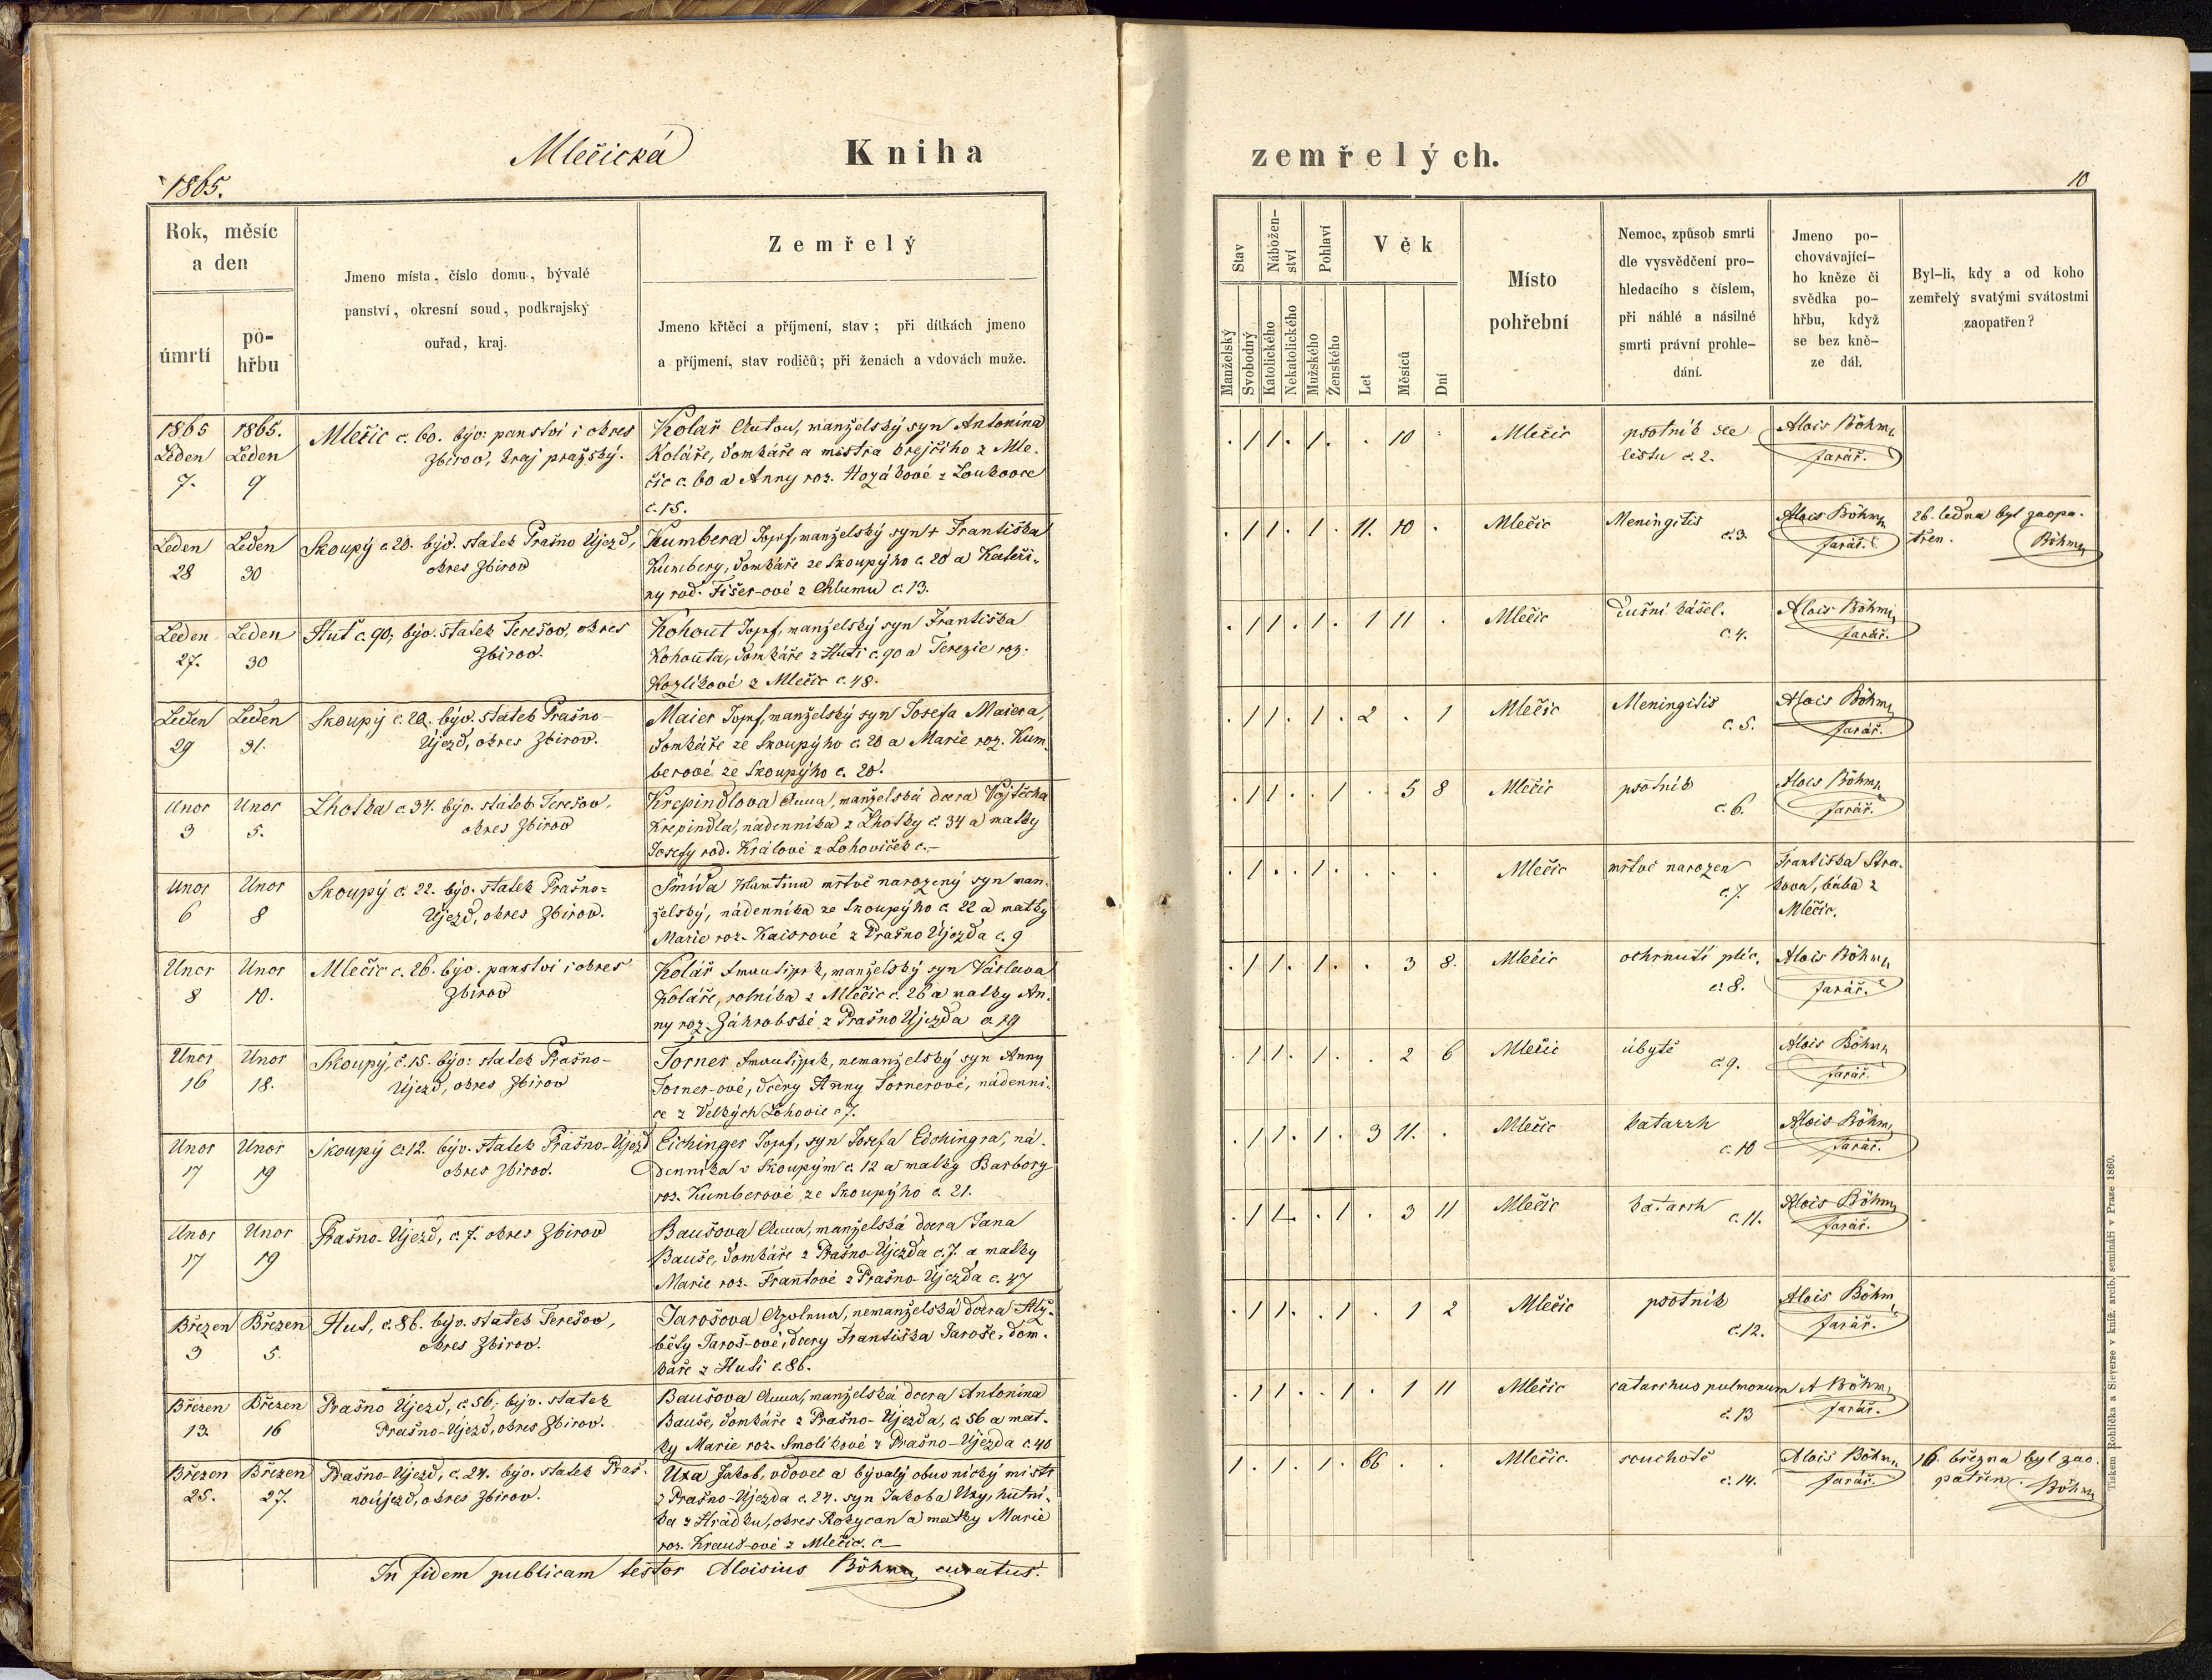 Mlečická Kniha zemřelých.
1865.
10
Rok, měsíc
a den
úmrtí
po-
hřbu
Jmeno místa, číslo domu, bývalé
panství, okresní soud, podkrajský
ouřad, kraj.
Zemřelý
Jmeno křtěcí a příjmení, stav; při dítkách jmeno
a příjmení, stav rodičů; při ženách a vdovách muže.
Stav
Nábožen-
ství
Pohlaví
Věk
Manželský
Svobodný
Katolického
Nekatolického
Mužského
Ženského
Let
Měsíců
Dní
Místo
pohřební
Nemoc, způsob smrti
dle vysvědčení pro-
hledacího s číslem,
při náhlé a násilné
smrti právní prohle-
dání.
Jmeno po-
chovávající-
ho kněze či
svědka po-
hřbu, když
se bez kně-
ze dál.
Byl-li, kdy a od koho
zemřelý svatými svátostmi
zaopatřen?
1865 Leden 7.
1865. Leden 9
Mlečic c. 60. býv: panství i okres
Zbirov, kraj pražský.
Kolař Anton, manželský syn Antonína
Koláře, domkáře a mistra krejčího z Mle-
čic c. 60 a Anny roz. Hozákové z Loukovce
c. 15.
. 1 1 . 1 . . 10 .
Mlečic
psotník dle
listu c. 2.
Alois Böhm,
farář.
Leden 28
Leden 30
Skoupý c. 20. býv. statek Prašno Újezd,
okres Zbirov
Kumbera Josef, manželský syn + Františka
Kumbery, domkáře ze Skoupýho c. 20 a Kateři-
ny rod. Fišer-ové z Chlumu c. 13.
. 1 1 . 1 . 11. 10 .
Mlečic
Meningitis
c. 3.
Alois Böhm,
farář.
26. ledna byl zaopa-
třen. Böhm
Leden 27.
Leden 30
Huť c. 90, býv. statek Terešov, okres
Zbirov.
Kohout Josef, manželský syn Františka
Kohouta, domkáře z Huti c. 90 a Terezie roz.
Kozlíkové z Mlečic c. 48.
. 1 1 . 1 . 1 11 .
Mlečic
Dušní kášel.
c. 4.
Alois Böhm,
farář.
Leden 29
Leden 31.
Skoupý c. 20. býv. statek Prašno-
Újezd, okres Zbirov.
Maier Josef, manželský syn Josefa Maiera,
domkáře ze Skoupýho c. 20 a Marie roz. Kum-
berové ze Skoupýho c. 20.
. 1 1 . 1 . 2 . 1
Mlečic
Meningitis
c. 5.
Alois Böhm,
farář.
Unor 3
Unor 5.
Lhotka c. 34. býv. statek Terešov,
okres Zbirov
Krepindlova Anna, manželská dcera Vojtěcha
Krepindla, nádenníka z Lhotky c. 34 a matky
Josefy rod. Králové z Lohoviček c. –
. 1 1 . . 1 . 5 8
Mlečic
psotník
c. 6.
Alois Böhm,
farář.
Unor 6
Unor 8
Skoupý c. 22. býv. statek Prašno-
Újezd, okres Zbirov.
Šmída Martina mrtvě narozený syn man-
želský, nádenníka ze Skoupýho c. 22 a matky
Marie roz. Kaisrové z Prašno Újezda c. 9
. 1 . . 1 . . . .
Mlečic
mrtvě narozen
c. 7.
Františka Stra-
kova, bába z
Mlečic.
Unor 8
Unor 10.
Mlečic c. 26. býv. panství i okres
Zbirov
Kolář František, manželský syn Václava
Koláře, rolníka z Mlečic c. 26 a matky An-
ny roz. Záhrobské z Prašno Újezda c. 29
. 1 1 . 1 . . 3 8.
Mlečic
ochrnutí plic.
c. 8.
Alois Böhm,
farář.
Unor 16
Unor 18.
Skoupý, c. 15. býv: statek Prašno-
Újezd, okres Zbirov
Torner František, nemanželský syn Anny
Torner-ové, dcéry Anny Tornerové, nádenni-
ce z Velkých Lohovic c 7.
. 1 1 . 1 . . 2 6
Mlečic
úbytě
c. 9.
Alois Böhm,
farář.
Unor 17
Unor 19
Skoupý c. 12. býv. statek Prašno-Újezd
okres Zbirov.
Eichinger Josef, syn Josefa Eichingra, ná-
denníka v Skoupým c. 12 a matky Barbory
roz. Kumberové ze Skoupýho c. 21.
. 1 1 . 1 . 3 11. .
Mlečic
katarrh
c. 10
Alois Böhm,
farář.
Unor 17
Unor 19
Prašno-Újezd, c. 7. okres Zbirov
Baušova Anna, manželská dcera Jana
Bauše, domkáře z Prašno-Újezda c. 7. a matky
Marie roz. Frantové z Prašno-Újezda c. 47
. 1 1 . . 1 . 3 11
Mlečic
katarrh
c. 11.
Alois Böhm,
farář.
Březen 3
Březen 5.
Huť, c. 86. býv. statek Terešov,
okres Zbirov.
Jarošova Apolena, nemanželská dcera Alž-
běty Jaroš-ové, dcery Františka Jaroše, dom-
káře z Huti c. 86.
. 1 1 . . 1 . 1 2
Mlečic
psotník
c. 12.
Alois Böhm,
farář.
Březen 13.
Březen 16
Prašno Újezd, c. 56, býv. statek
Prašno-Újezd, okres Zbirov.
Baušova Anna, manželská dcera Antonína
Bauše, domkáře z Prašno-Újezda, c. 56 a mat-
ky Marie roz. Smolíkové z Prašno-Újezda c. 40
. 1 1 . . 1 . 1 11
Mlečic
catarrhus pulmonum
c. 13
A Böhm,
farář.
Březen 25.
Březen 27.
Prašno-Újezd, c. 24. býv. statek Praš-
noújezd, okres Zbirov.
Uxa Jakob, vdovec a bývalý obuvnický mistr
z Prašno-Újezda c. 24. syn Jakoba Uxy, hutní-
ka z Hrádku, okres Rokycan a matky Marie
roz. Krauš-ové z Mlečic. c –
1 . 1 . 1 . 66 . .
Mlečic.
souchotě
c. 14.
Alois Böhm,
farář.
16. března byl zao-
patřen. Böhm
In fidem publicam testor Aloisius Böhm, curatus.
Tiskem Rohlíčka a Sieverse v kníž. arcib. semináři v Praze 1860.